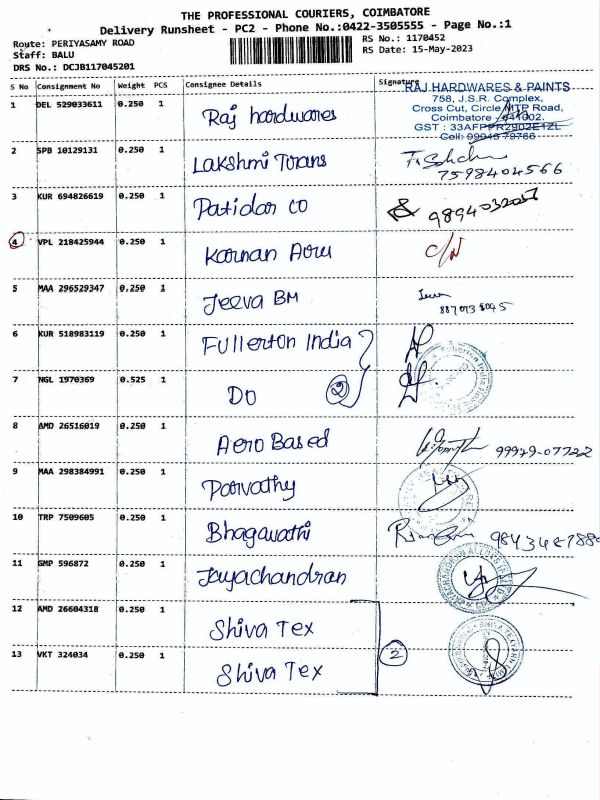 THE PROFESSIONAL COURIERS, COIMBATORE
Delivery Runsheet - PC2 - Phone No.:0422-3505555 - Page No.:1
Route: PERIYASAMY ROAD RS No.: 1170452
Staff: BALU RS Date: 15-May-2023
DRS No.: DCJB117045201
S No Consignment No Weight PCS Consignee Details Signature
RAJ HARDWARES & PAINTS
758, J.S.R. Complex,
Cross Cut, Circle MTP Road,
Coimbatore - 641002.
GST : 33AFPPR2902E1ZL
Cell: 09943 79766
1 DEL 529033611 0.250 1 Raj hardwares
2 SPB 10129131 0.250 1 Lakshmi Trans
7598404566
3 KUR 694826619 0.250 1 Patidar CO
4 VPL 218425944 0.250 1 C/N
5 MAA 296529347 0.250 1 Jeeva BM
6 KUR 518983119 0.250 1 Fullerton India
7 NGL 1970369 0.525 1 DO 2
8 AMD 26516019 0.250 1 Aero Based 99949-07722
9 MAA 298384991 0.250 1 Parvathy
10 TRP 7509605 0.250 1 Bhagavathi
11 GMP 596872 0.250 1 Jayachandran
12 AMD 26604318 0.250 1 Shiva Tex
13 VKT 324034 0.250 1 Shiva Tex 2